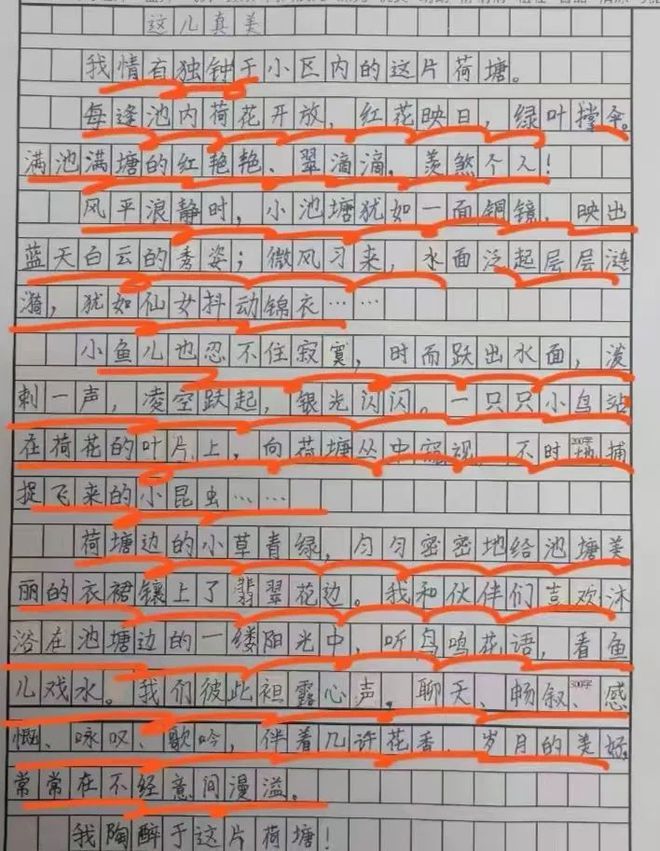 这儿真美
我情有独钟于小区内的这片荷塘。
每逢池内荷花开放,红花映日,绿叶撑伞。
满池满塘的红艳艳、翠滴滴,羡煞个人!
风平浪静时,小池塘犹如一面铜镜,映出
蓝天白云的秀姿;微风习来,水面泛起层层涟
漪,犹如仙女抖动锦衣……
小鱼儿也忍不住寂寞,时而跃出水面,泼
刺一声,凌空跃起,银光闪闪。一只只小鸟站
在荷花的叶片上,向荷塘丛中窥视,不时地捕
捉飞来的小昆虫……
荷塘边的小草青绿,匀匀密密地给池塘美
丽的衣裙镶上了翡翠花边。我和伙伴们喜欢沐
浴在池塘边的一缕阳光中,听鸟鸣花语,看鱼
儿戏水。我们彼此袒露心声,聊天、畅叙、感
慨、咏叹、歌吟,伴着几许花香,岁月的美好,
常常在不经意间漫溢。
我陶醉于这片荷塘!